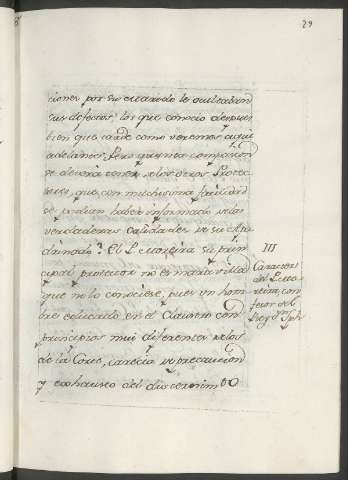 29
ciones por su estando le ocultaban
sus defectos, los que conocio despues
bien que tarde como veremos aqui
adelante. Pero que compasion
se devera tener a los otros Protec
tores, que con muchissima facilidad
se podian haber informado de las
verdaderas calidades de su Aha
drinado? El P. Moreira su prin
cipal protector no es maravilla
que no lo conociese, pues un hom
bre educado en el Claustro con
principios mui diferentes de los
de la Corte, carecia de precaucion
y exhausto del discernim.to
III
Caracter
del P. Mo
reira, con
fesor del
Rey Dn Jph.